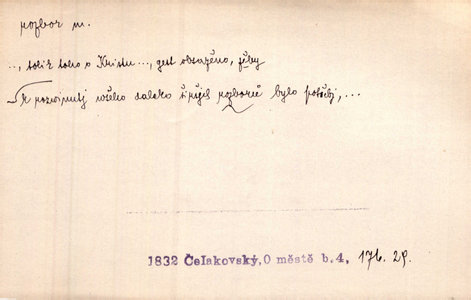 rozbor m.
.., tolik toho o Kristu ..., gest obsaženo, žeby
k rozwinutj wšeho daleko širšjch rozborů bylo potřebj, ...
1832 Čelakovský,O městě b.4, 176. 29.